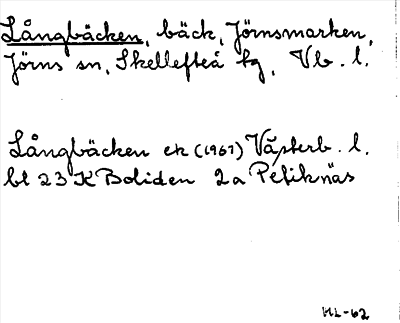 Långbäcken, bäck, Jörnsmarken,
Jörns sn, Skellefteå kg, Vb. l.
Långbäcken ek (1967) Västerb. l.
bl 23 K Boliden 2a Petiknäs
HL-62